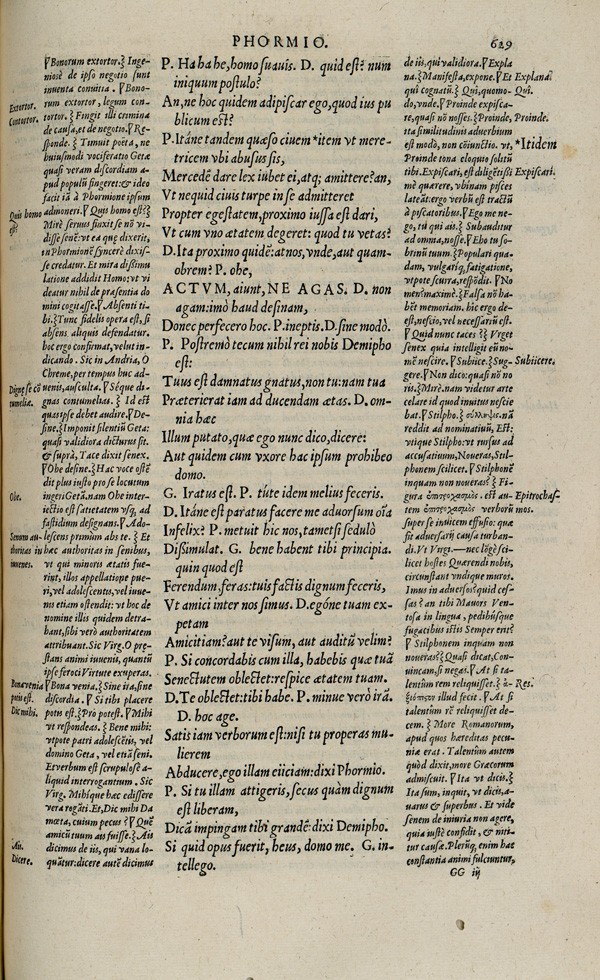 PHORMIO.
629
Extortor.
Contortor.
Quis homo
est?
Digne se cō
tumeliæ.
Obe.
Senum au-
thoritas in
iuuenes.
Bona venia
potis est.
Dic mihi.
Aii.
Dicere.
ꝟ Bonorum extortor.⁊ Inge-
niosè de ipso negotio sunt
inuenta conuitia. ꝟ Bono-
rum extortor, legum con-
tortor.⁊ Fingit illi crimina
de causa, et de negotio. ꝟ Re-
sponde. ⁊ Timuit poëta, ne
huiusmodi vociferatio Getæ
quasi veram discordiam a-
pud populū fingeret: & ideo
facit iā à Phormione ipsum
admoneri. ꝟ Quis homo est?⁊
Mirè seruus finxit se nō vi-
disse senē: vt ea quæ dixerit,
in Phormionē syncerè dixis-
se credatur. Et mira dissimu
latione addidit Homo: vt vi
deatur nihil de præsentia do
mini cogitasse. ꝟ Absenti ti-
bi.⁊ Tunc fidelis opera est, si
absens aliquis defendatur.
hoc ergo confirmat, velut in-
dicando. Sic in Andria, O
Chreme, per tempus huc ad-
uenis, ausculta. ꝟ Séque di-
gnas contumelias. ⁊ Id est
quas ipse debet audire. ꝟ De-
sine.⁊ Imponit silentiū Getæ:
quasi validiora dicturus sit.
& suprà, Tace dixit senex.
ꝟ Obe desine.⁊ Hac voce ostē
dit plus iusto pro se locutum
ingeri Getā. nam Obe inter-
iectio est satietatem vsq; ad
fastidium designans. ꝟ Ado-
lescens primùm abs te. ⁊ Et
hæc authoritas in senibus,
vt qui minoris ætatis fue-
rint, illos appellatione pue-
ri, vel adolescentis, vel iuue-
nis etiam ostendit: vt hoc de
nomine illis quidem detra-
hant, sibi verò authoritatem
attribuant. Sic Virg. O præ-
stans animi iuuenis, quantū
ipse feroci Virtute exuperas.
ꝟ Bona venia.⁊ Sine ira, sine
discordia. ꝟ Si tibi placere
potis est.⁊ Prò potest. ꝟ Mihi
vt respondeas. ⁊ Bene mihi:
vtpote patri adolescētis, vel
domino Getæ, vel etiā seni.
Et verbum est scrupulosè a-
liquid interrogantium. Sic
Virg. Mihíque hæc edissere
vera rogāti. Et, Dic mihi Da
mœta, cuium pecus? ꝟ Quē
amicū tuum ais fuisse.⁊ Ais
dicimus de iis, qui vana lo-
quūtur: dicere autē dicimus
P. Ha ha he, homo suauis. D. quid est? nūm
iniquum postulo?
An, ne hoc quidem adipiscar ego, quod ius pu
blicum est?
P. Itáne tandem quæso ciuem *item vt mere-
tricem vbi abusus sis,
Mercedē dare lex iubet ei, atq; amittere? an,
Vt nequid ciuis turpe in se admitteret
Propter egestatem, proximo iussa est dari,
Vt cum vno ætatem degeret: quod tu vetas?
D. Ita proximo quidē: at nos, vnde, aut quam-
obrem? P. ohe,
ACTVM, aiunt, NE AGAS. D. non
agam: imò haud desinam,
Donec perfecero hoc. P. ineptis. D. sine modò.
P. Postremò tecum nihil rei nobis Demipho
est:
Tuus est damnatus gnatus, non tu: nam tua
Præterierat iam ad ducendam ætas. D. om-
nia hæc
Illum putato, quæ ego nunc dico, dicere:
Aut quidem cum vxore hac ipsum prohibeo
domo.
G. Iratus est. P. túte idem melius feceris.
D. Itáne est paratus facere me aduorsum oīa
Infelix? P. metuit hic nos, tametsi sedulò
Dissimulat. G. bene habent tibi principia.
quin quod est
Ferendum, feras: tuis factis dignum feceris,
Vt amici inter nos simus. D. egóne tuam ex-
petam
Amicitiam? aut te visum, aut auditū velim?
P. Si concordabis cum illa, habebis quæ tuā
Senectutem oblectet: respice ætatem tuam.
D. Te oblectet: tibi habe. P. minue verò irā.
D. hoc age.
Satis iam verborum est: nisi tu properas mu-
lierem
Abducere, ego illam eiiciam: dixi Phormio.
P. Si tu illam attigeris, secus quàm dignum
est liberam,
Dicā impingam tibi grandē: dixi Demipho.
Si quid opus fuerit, heus, domo me. G. in-
tellego.
de iis, qui validiora. ꝟ Expla
na.⁊ Manifesta, expone. ꝟ Et
qui cognatū.⁊ Qui, quomo-
do, vnde. ꝟ Proinde expisca-
re, quasi nō nosses.⁊ Proinde,
ita similitudinis aduerbium
est modò, non cōiunctio. vt,
Proinde tona eloquio solitū
tibi. Expiscari, est diligētissi
mè quærere, vbinam pisces
lateāt: ergo verbū est tractū
à piscatoribus. ꝟ Ego me ne-
go, tu qui ais.⁊ Subauditur
ad omnia, nosse. ꝟ Eho tu so-
brinū tuum.⁊ Populari qua-
dam, vulgariq; fatigatione,
vtpote scurra, respōdit. ꝟ No
men? maximè.⁊ Falsa nō ha-
bēt memoriam. hîc ergo de-
est, nescio, vel necessariū est.
ꝟ Quid nunc taces?⁊ Vrget
senex quia intelligit eū no-
mē nescire. ꝟ Subiice.⁊ Sug-
gere. ꝟ Non dico: quasi nō no
ris.⁊ Mirè. nam videtur arte
celare id quod inuitus nescie
bat. ꝟ Stilpho.⁊
reddit ad nominatiuū, Est:
vtique Stilpho: vt rursus ad
accusatiuum, Noueras, Stil-
phonem scilicet. ꝟ Stilphonē
inquam non noueras?⁊ Fi-
gura ἐπιτροχασμός. est au-
tem ἐπιτροχασμὸς verborū
super se inuicem effusio: quæ
fit aduersarii causa turban-
di. Vt Virg.—nec lōgè sci-
licet hostes Quærendi nobis,
circunstant vndique muros.
Imus in aduersos? quid ces-
sas? an tibi Mauors Ven-
tosa in lingua, pedibúsque
fugacibus istis Semper erit?
ꝟ Stilphonem inquam non
noueras?⁊ Quasi dicat, Con-
uincam, si negas. ꝟ At si ta-
lentūm rem reliquisset.⁊
illud fecit. ꝟ At si
talentūm rē reliquisset de-
cem. ⁊ More Romanorum,
apud quos hæreditas pecu-
nia erat. Talentūm autem
quòd dixit, more Græcorum
admiscuit. ꝟ Ita vt dicis.⁊
Ita sum, inquit, vt dicis, a-
uarus & superbus. Et vide
senem de iniuria non agere,
quia iustè confidit, & niti-
tur causæ. Plerūq; enim hæc
constantia animi fulciuntur,
Explana.
Qui.
Proinde.
*Itidem
Expiscari.
Subiicere.
Epitrochas-
mos.
Res.
GG iij